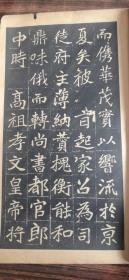 而儁華茂實以響流於京
夏矣被　旨起家召為司
徒府主薄納賛槐衡能和
鼎味俄而轉尚書都官郎
中時　高祖孝文皇帝將